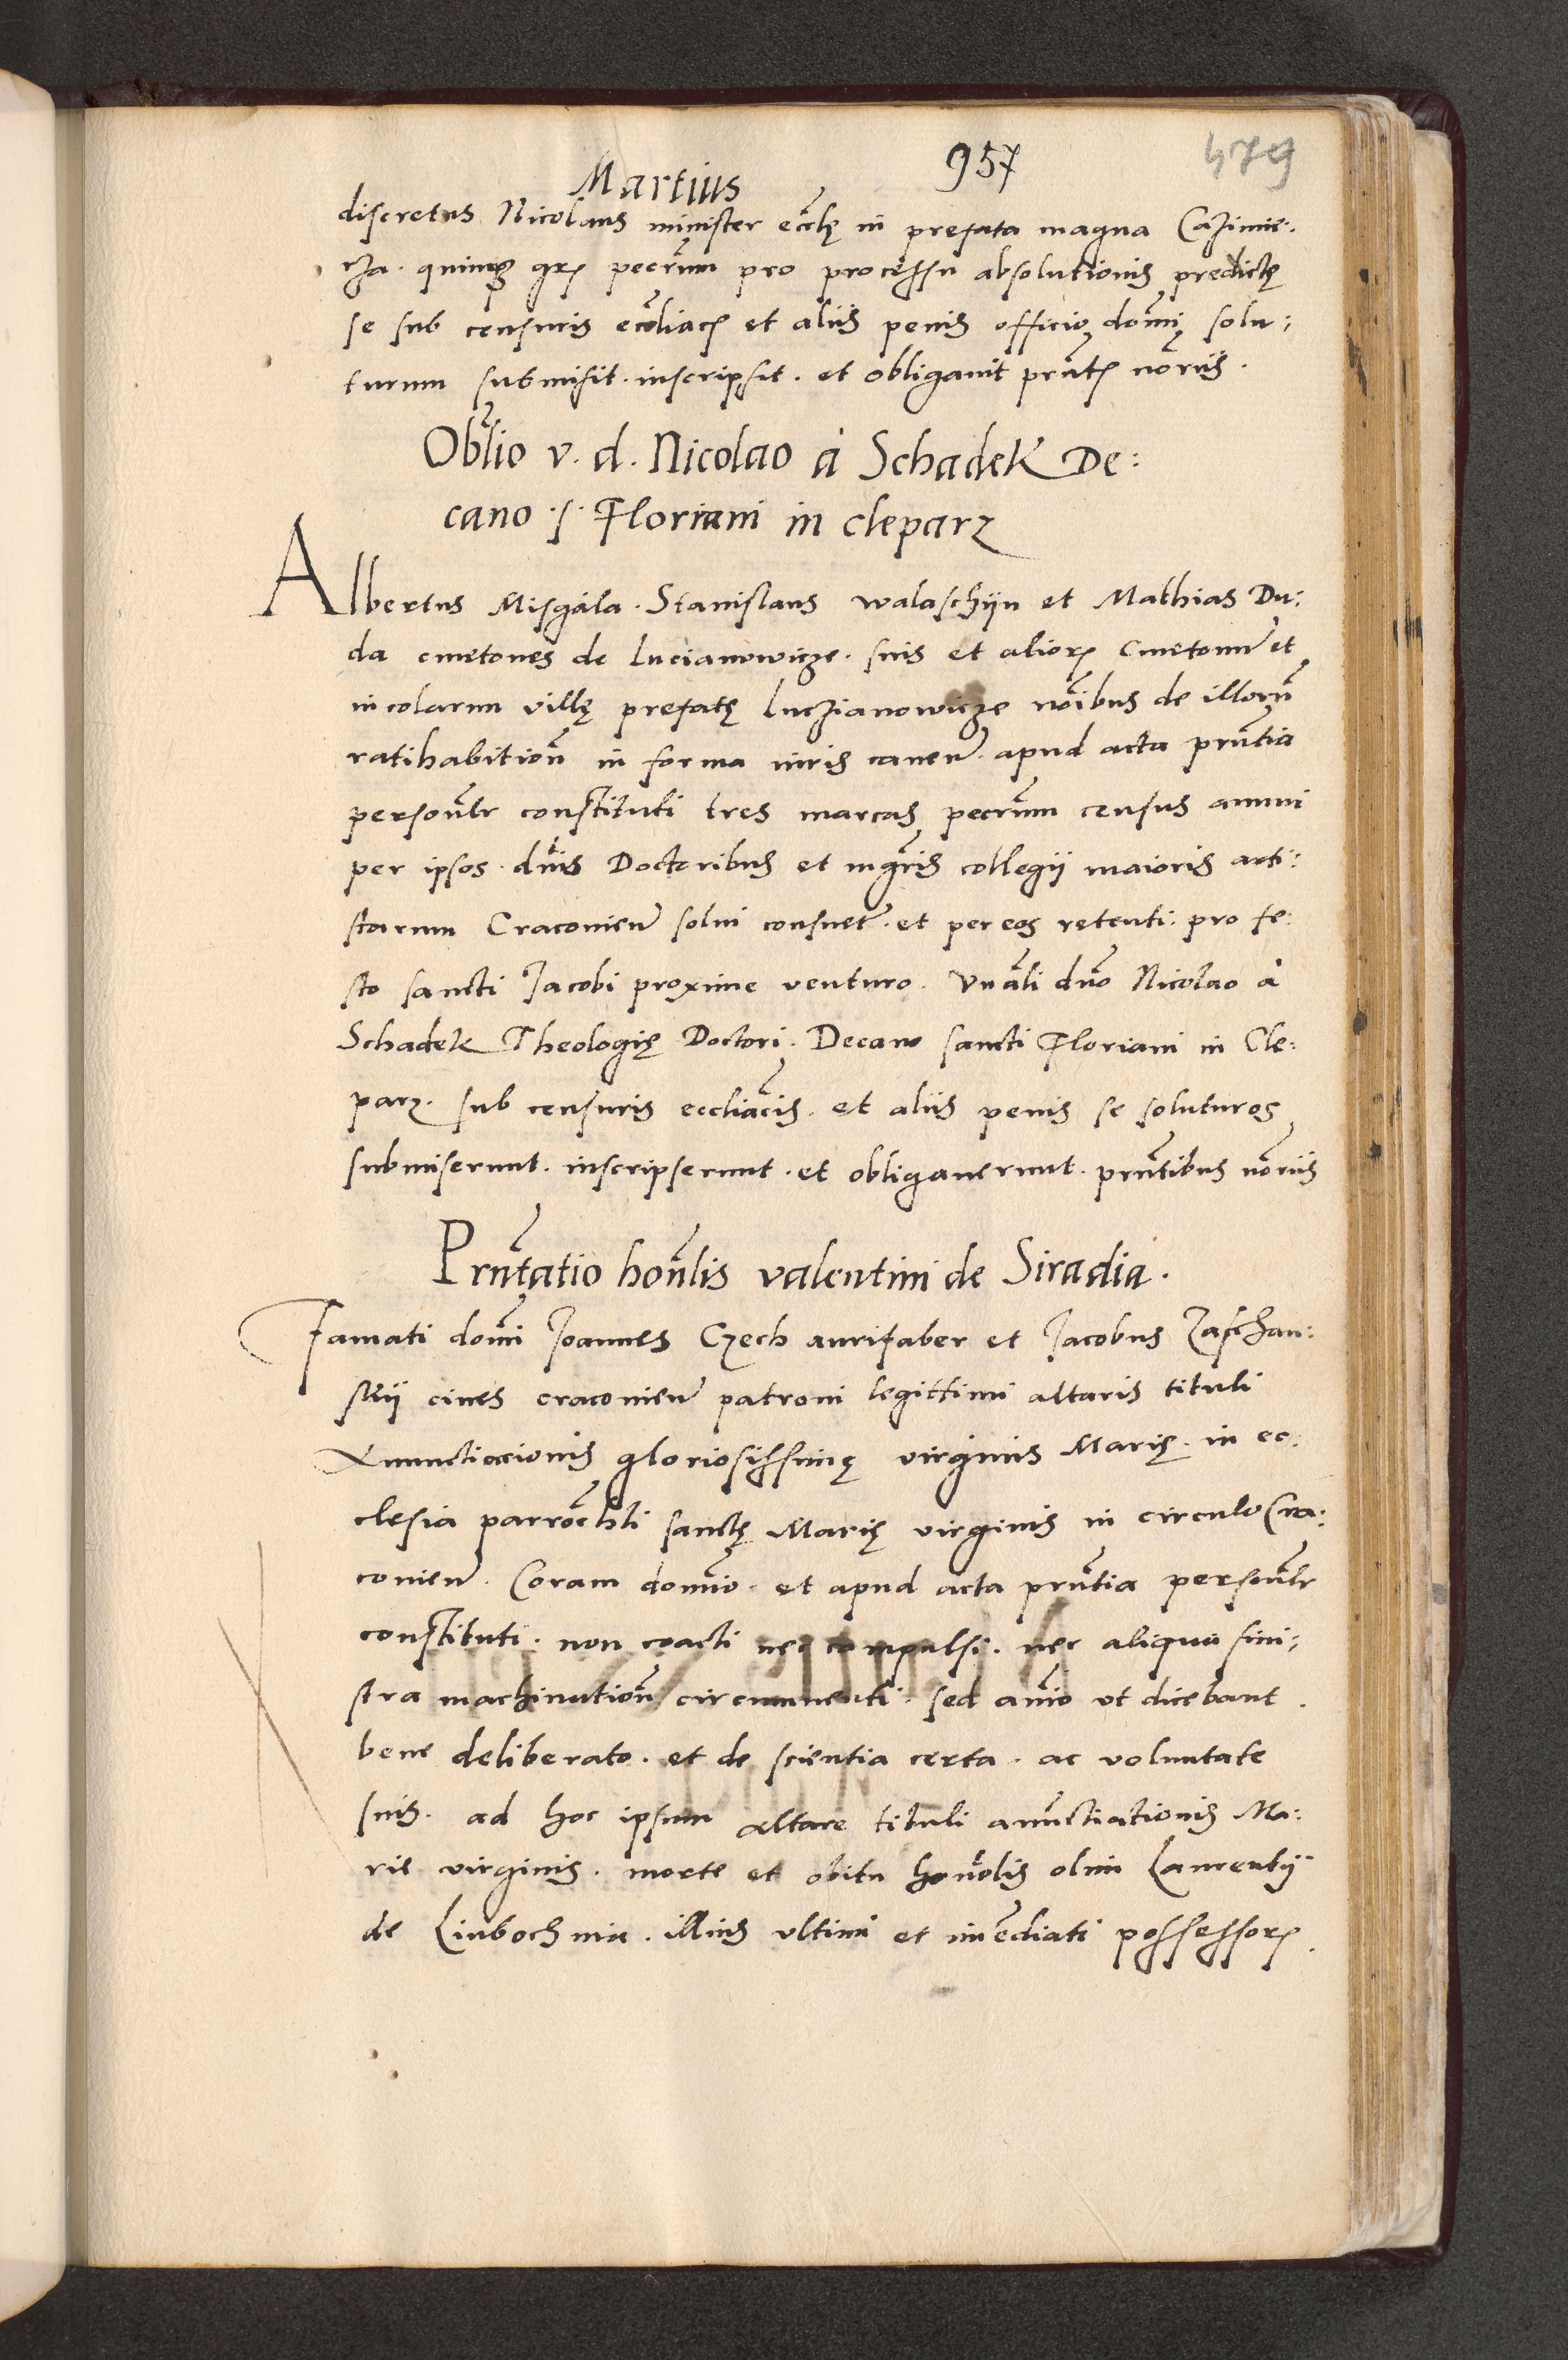 957
479
Martius
discretus Nicolaus minister eccl̃ę in prefata magna Cazimie:
rza. quinqȝ grꝭ pecc̃rum pro processu absolutionis predictę
se sub censuris eccl̃iacꝭ et aliis penis officio dom̃i solu:
turum submisit. inscripsit. et obligauit prñtꝭ nõriis.
Obl̃io v. d. Nicolao à Schadek De:
cano .s. Floriani in cleparz
Albertus Misgala. Stanislaus walaschijn et Mathias Du:
da cmetones de Lucianowicze. suis et aliorꝭ Cmetonũ et
incolarum villę prefatę Luczianowicze nõibus de illorũ
ratihabitioñ in forma iuris caueñ. apud acta prñtia
persoñltr constituti tres marcas peccr̃um census annui
per ipsos. dñis Doctoribus et mgr̃is collegij maioris arti:
starum Cracouieñ solui consuet̃. et per eos retenti: pro fe:
sto sancti Jacobi proxime venturo. Vnãli dño Nicolao à
Schadek Theologię Doctori. Decano sancti Floriani in Cle:
parz. sub censuris eccliãcis. et aliis penis se soluturos
submiserunt. inscripserunt. et obligauerunt. prñtibus nõriis
Prñtatio hoñlis valentini de Siradia.
Famati dom̃i Joannes Czech aurifaber et Jacobus
skij ciues cracouieñ patroni legittimi altaris tituli
Annuncciacionis gloriosissimę virginis Marię. in ec:
clesia parrõchli sanctę Marię virginis in circulo Cra:
couieñ. Coram domĩo. et apud acta prñtia persoñltr
constituti. non coacti nec compulsi. nec aliqua sini:
stra machinatioñ circumuenti. sed aĩmo vt dicebant.
bene deliberato. et de scientia certa. ac voluntate
suis. ad hoc ipsum altare tituli anũnctiationis Ma:
rie virginis. morte et obitu honõlis olim Laurentij
de Liubochnia. illius vltimi et im̃ediati possessorꝭ.